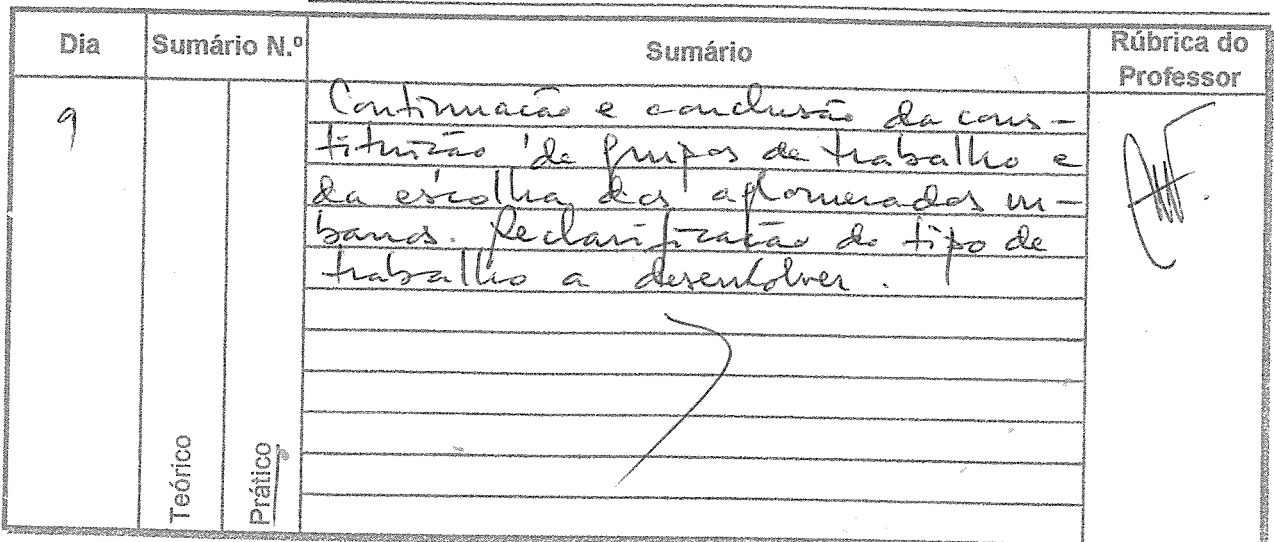 Dia Sumário N.º Sumário Rúbrica do Professor
9
Continuação e conclusão da cons-
tituição de grupos de trabalho e
da escolha dos aglomerados ur-
banos. Reclarificação do tipo de
trabalho a desenvolver.
Teórico
Prático